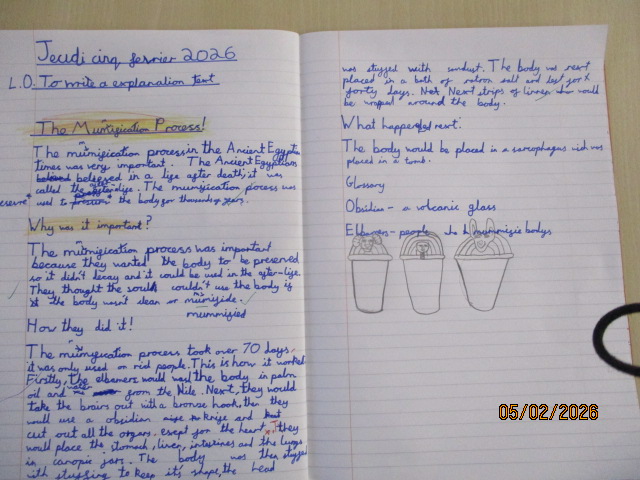 Jeudi cinq fevrier 2026
L.O. To write a explanation text
The Mummification Process!
The mummification process in the Ancient Egyptian
times was very important. The Ancient Egyptians
believed in a life after death; it was
called the afterlife. The mummification pocess was
used to preserve the body for thousands of years.
Why was it important?
The mummification process was important
because they wanted the body to be preserved
so it didn't decay and it could be used in the after-life.
They thought the soul couldn't use the body if
the body wasn't clean or
mummified
How they did it!
The mummification process took over 70 days.
it was only used on rich people. This is how it worked
Firstly, the elbamers would wash the body in palm
oil and water from the Nile. Next, they would
take the brains out with a bronze hook, then they
would use a obsidian knife and
cut out all the organs. exept for the heart they
would place the stomach, liver, intestines and the lungs
in canopic jars. The body was then stuffed
with stuffing to keep it's shape, the head
was stuffed with sawdust. The body was next
placed in a bath of natron salt and left for
forty days. Next strips of linnen would
be wrapped around the body.
What happened next.
The body would be placed in a sarcophagus wich was
placed in a tomb.
Glossary
Obsidian - a volcanic glass
Elbamers - people who mummifie bodys
05/02/2026